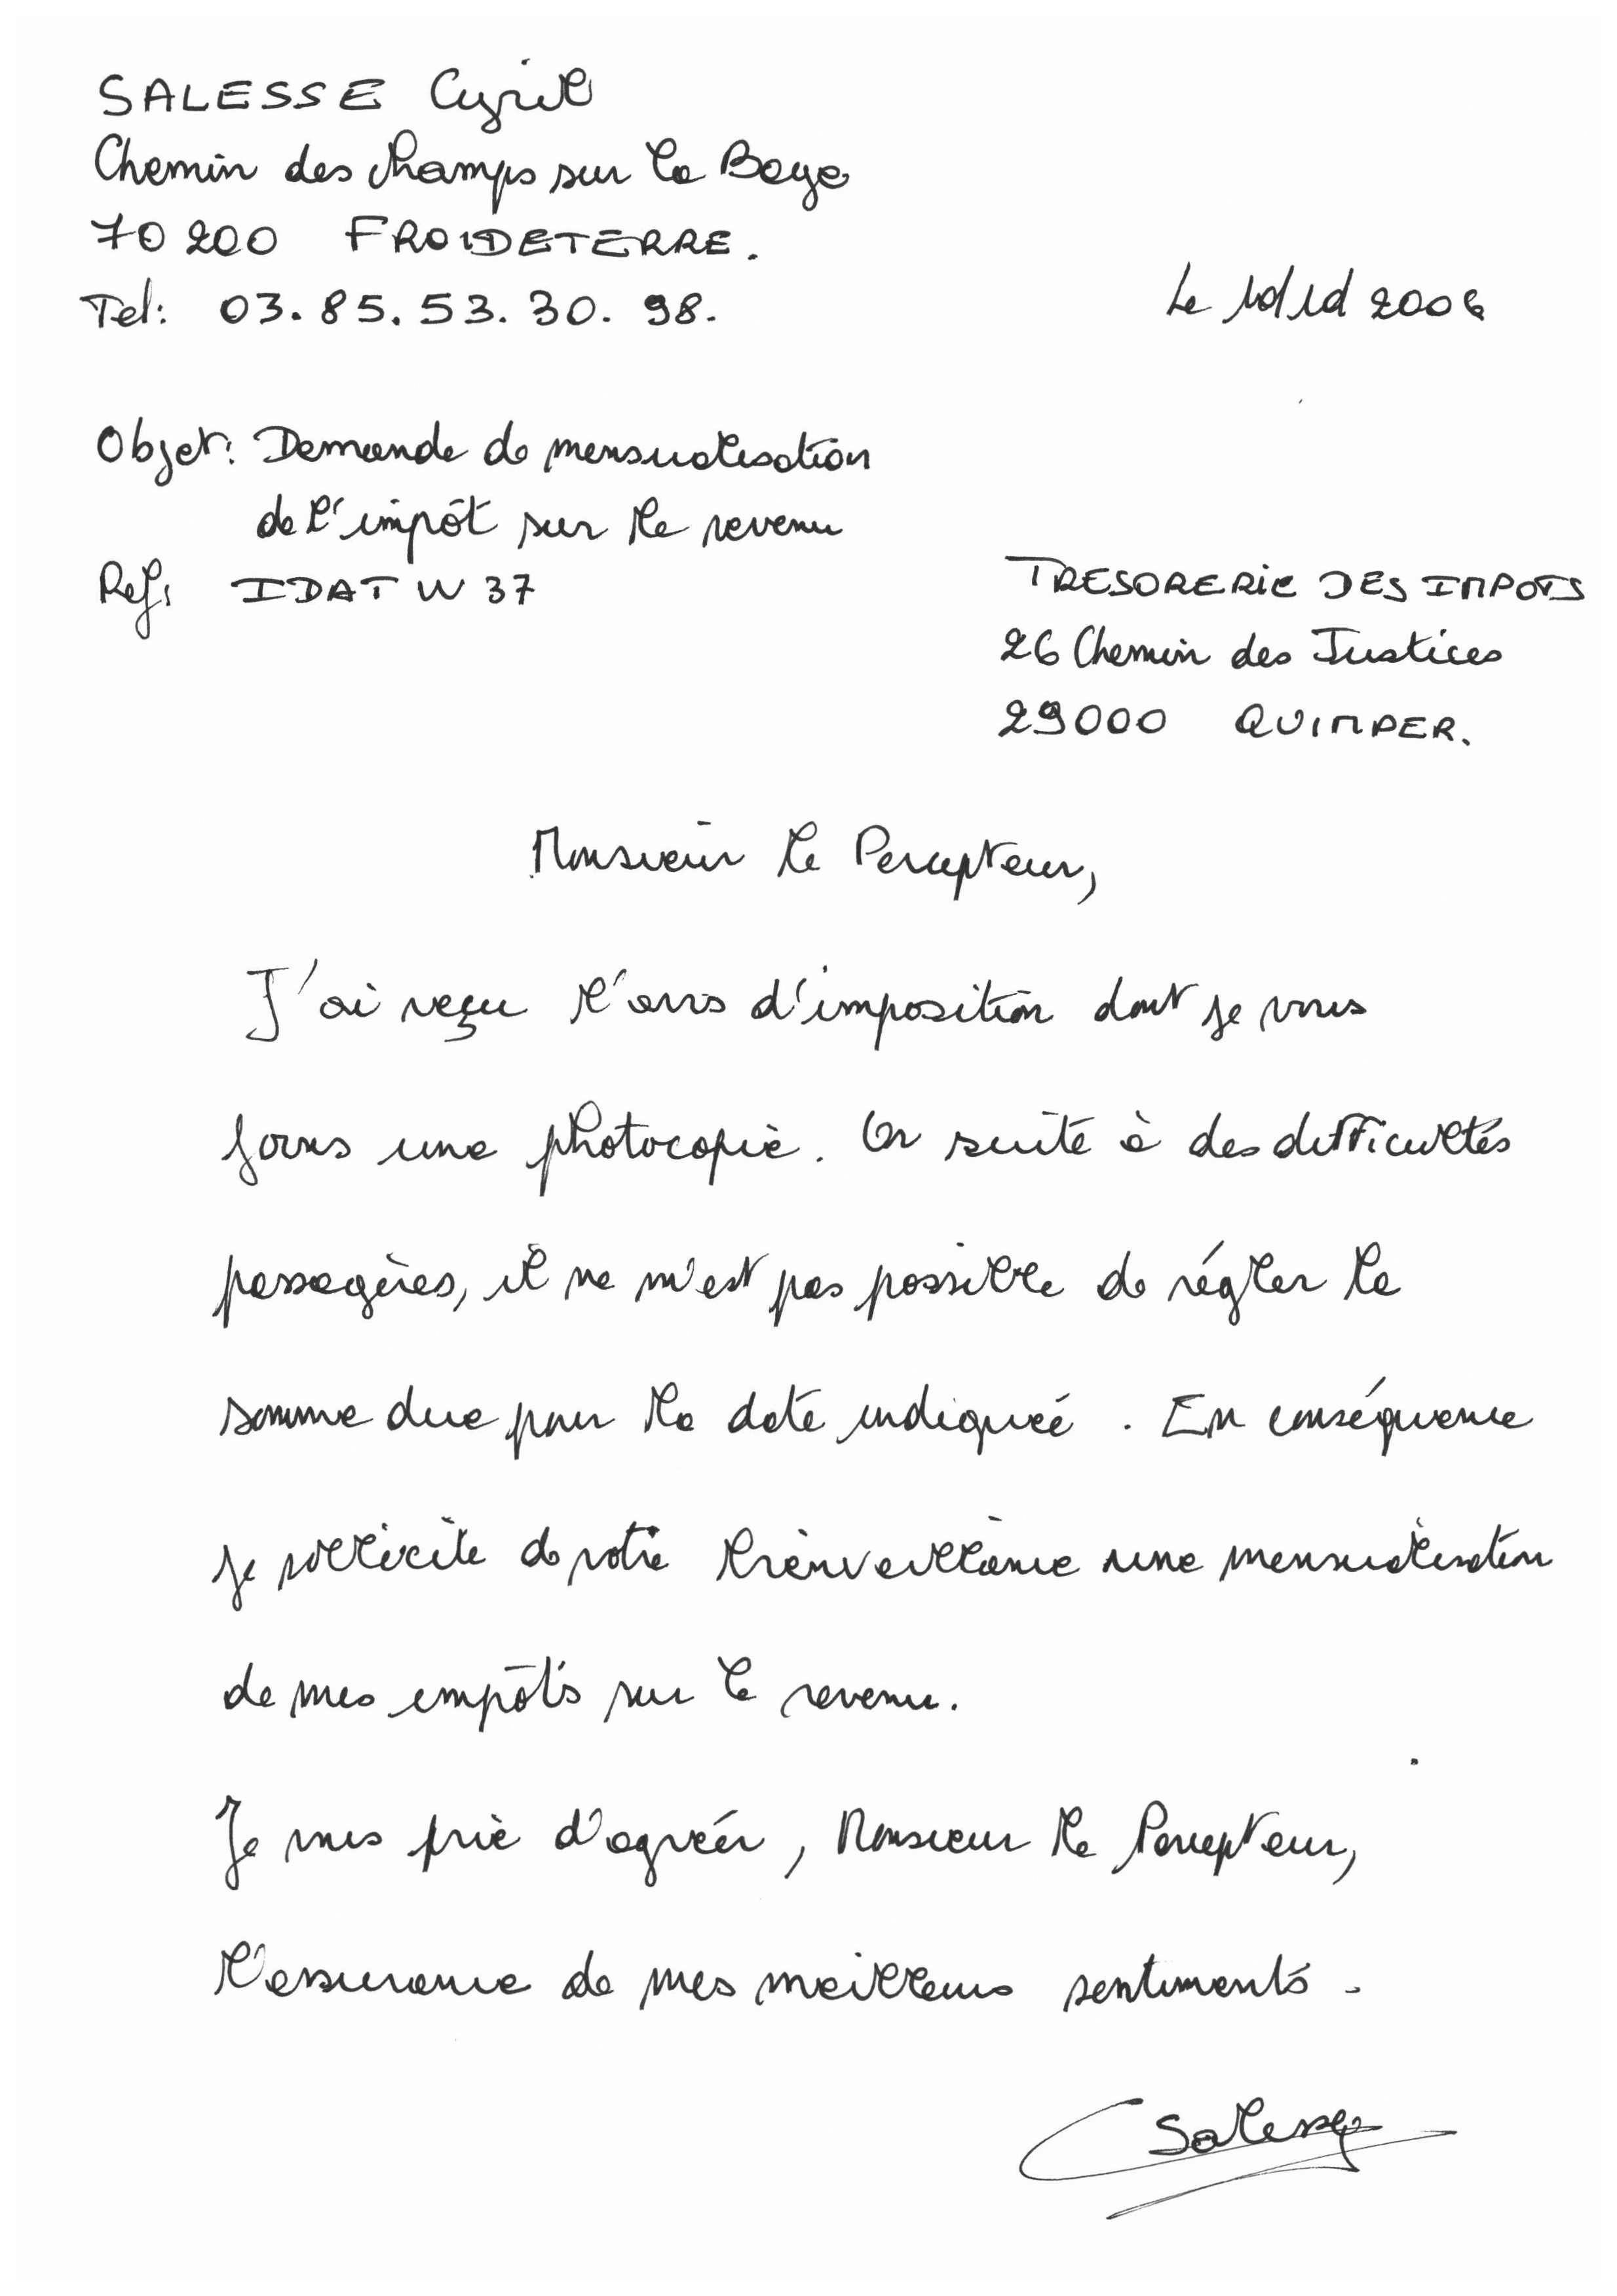 SALESSE Cyril
Chemin des champs sur la Baye
70 200 FROIDETERRE.
Tel: 03.85.53.30.98.
Le 2006
Objet: Demande de mensualisation
de l'impôt sur le revenu
Ref: IDATW37
TRESORERIE DES IMPOTS
26 Chemin des Justices
29000 QUIMPER.
Monsieur le Percepteur,
J'ai reçu l'avis d'imposition dont je vous
fais une photocopie. Or suite à des difficultés
passagères, il ne m'est pas possible de régler la
somme due pour la date indiquée. En conséquence
je sollicite de votre bienveillance une mensualisation
de mes impôts sur le revenu.
Je vous prie d'agréer, Monsieur le Percepteur,
l'assurance de mes meilleurs sentiments.
Salesse